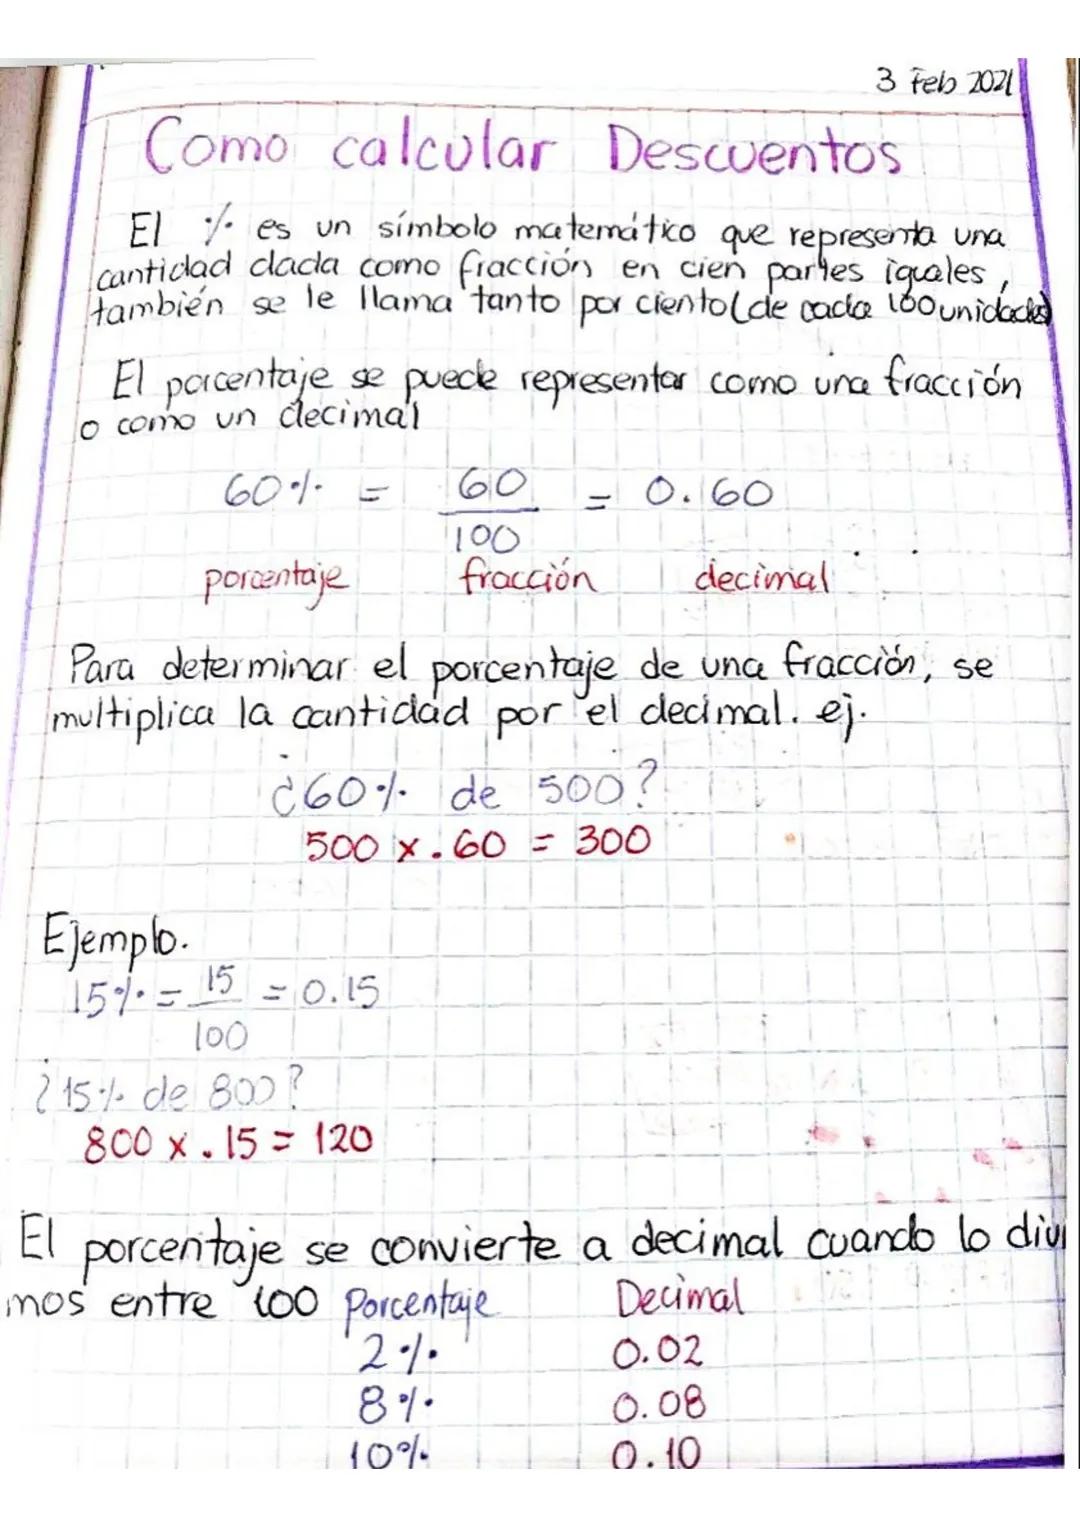 3 Feb 2021
Como calcular Descuentos
El % es un símbolo matemático que representa una
cantidad dada como fracción en cien partes iguales,
también se le llama tanto por ciento (de cada 100 unidades)
El porcentaje se puede representar como una fracción
o como un decimal
60% = 60/100 = 0.60
porcentaje fracción decimal
Para determinar el porcentaje de una fracción, se
multiplica la cantidad por el decimal. ej.
¿60% de 500?
500 x .60 = 300
Ejemplo.
15% = 15/100 = 0.15
¿15% de 800?
800 x .15 = 120
El porcentaje se convierte a decimal cuando lo divi
mos entre 100 Porcentaje Decimal
2% 0.02
8% 0.08
10% 0.10